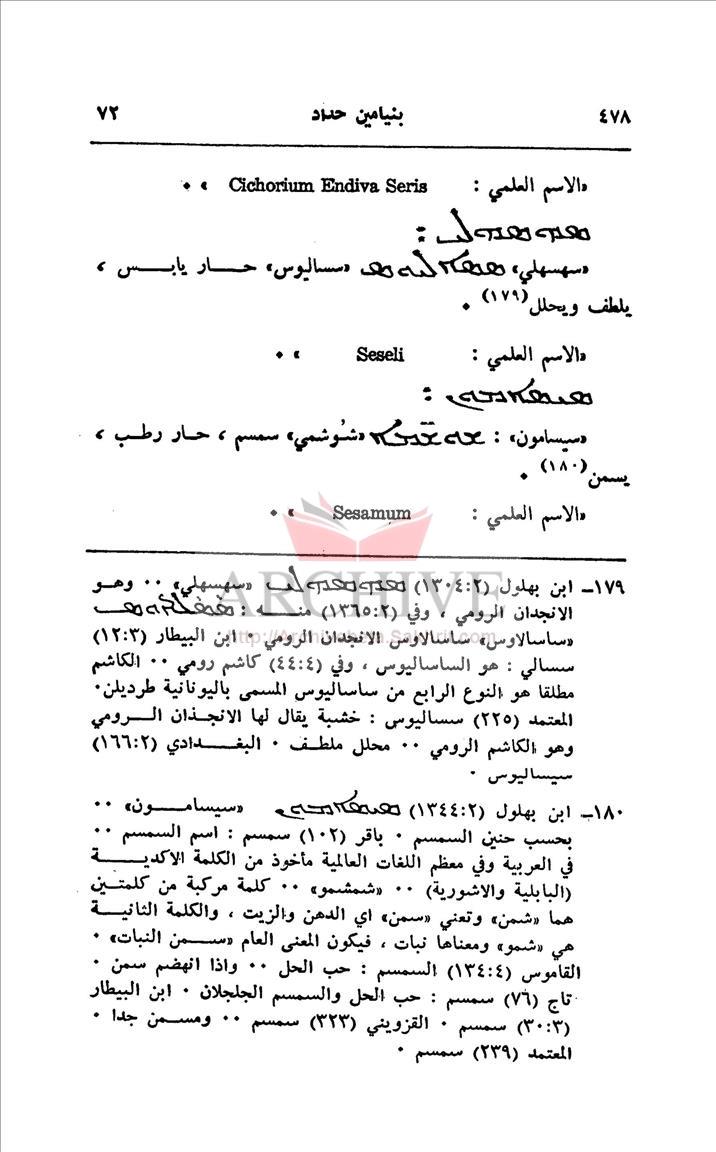 ٤٧٨ بنيامين حداد ٧٢
«الاسم العلمي : Cichorium Endiva Seris » ٠
«سهسهلي» «سساليوس» حــار يابــس ،
يلطف ويحلل(١٧٩) ٠
«الاسم العلمي : Seseli » ٠
«سيسامون» : «شوشمي» سمسم ، حـار رطـب ،
يسمن(١٨٠) ٠
«الاسم العلمي : Sesamum » ٠
ARCHIVE
١٧٩ــ ابن بهلول (١٣٠٤:٢) «سهسهلي» ٠٠ وهــو
الانجدان الرومي ، وفي (١٣٦٥:٢) منــه :
«ساسالاوس» ساسالاوس الانجدان الرومي ٠ ابن البيطار (١٢:٣)
سسالي : هو الساساليوس ، وفي (٤٤:٤) كاشم رومي ٠٠ الكاشم
مطلقا هو النوع الرابع من ساساليوس المسمى باليونانية طرديلن٠
المعتمد (٢٢٥) سساليوس : خشبة يقال لها الانجذان الـرومي
وهو الكاشم الرومي ٠٠ محلل ملطف ٠ البغـدادي (١٦٦:٢)
سيساليوس ٠
١٨٠ــ ابن بهلول (١٣٤٤:٢) «سيسامــون» ٠٠
بحسب حنين السمسم ٠ باقر (١٠٢) سمسم : اسم السمسم ٠٠
في العربية وفي معظم اللغات العالمية مأخوذ من الكلمة الاكديــة
(البابلية والاشورية) ٠٠ «شمشمو» ٠٠ كلمة مركبة من كلمتــين
هما «شمن» وتعني «سمن» اي الدهن والزيت ، والكلمة الثانيــة
هي «شمو» ومعناها نبات ، فيكون المعنى العام «ســمن النبات» ٠
القاموس (١٣٤:٤) السمسم : حب الحل ٠٠ واذا انهضم سمن ٠
تاج (٧٦) سمسم : حب الحل والسمسم الجلجلان ٠ ابن البيطار
(٣٠:٣) سمسم ٠ القزويني (٣٢٣) سمسم ٠٠ ومسـمن جدا ٠
المعتمد (٢٣٩) سمسم ٠